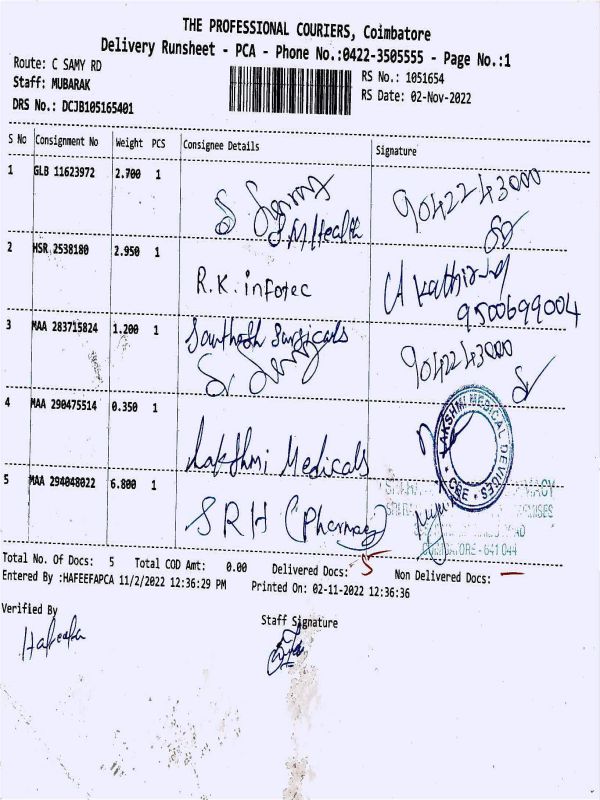 THE PROFESSIONAL COURIERS, Coimbatore
Delivery Runsheet - PCA - Phone No.:0422-3505555 - Page No.:1
Route: C SAMY RD
Staff: MUBARAK
DRS No.: DCJB105165401
RS No.: 1051654
RS Date: 02-Nov-2022
S No Consignment No Weight PCS Consignee Details Signature
1 GLB 11623972 2.700 1 90422 43000
S.M Health
2 HSR 2538180 2.950 1 R.K. infotec
9500699004
3 MAA 283715824 1.200 1 Santhosh Surgicals 90422 43000
4 MAA 290475514 0.350 1 Lakshmi Medicals
LAKSHMI MEDICAL DEVICES
CBE
5 MAA 294048022 6.800 1 SRH (Pharmacy)
COIMBATORE - 641 044
Total No. Of Docs: 5 Total COD Amt: 0.00 Delivered Docs: 5 Non Delivered Docs: —
Entered By :HAFEEFAPCA 11/2/2022 12:36:29 PM Printed On: 02-11-2022 12:36:36
Verified By Staff Signature
Hafeefa